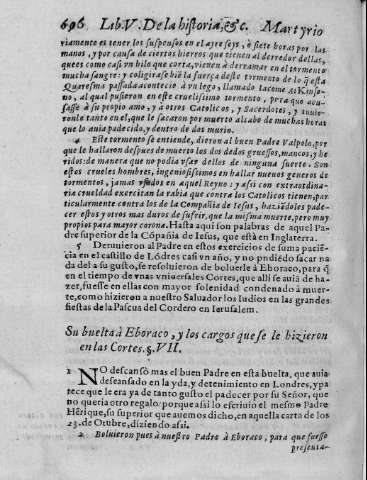 696 Lib. V. De la historia, &c. Martyrio
riamente es tener los suspensos en el ayre seys, ò siete horas por las
manos, y por causa de ciertos hierros que tienen al derredor dellas,
que es como casi vn hilo que corta, vienen à derramar en el tormento
mucha sangre: y coligirase biẽ la fuerça deste tormento de lo q̃ esta
Quaresma passada acontecio à vn lego, llamado Iacome Atkinso-
no, al qual pusieron en este cruelissimo tormento, para que acu-
sasse à su propio amo, y à otros Catolicos, y Sacerdotes, y tuuie-
ronle tanto en el, que le sacaron por muerto al cabo de muchas horas
que lo auia padecido, y dentro de dos murio.
4 Este tormento se entiende, dieron al buen Padre Valpolo, por
que le hallaron despues de muerto los dos dedos gruessos, mancos, y he
ridos: de manera que no podia vsar dellos de ninguna suerte. Son
estos crueles hombres, ingeniosissimos en hallar nueuos generos de
tormentos, jamas vsados en aquel Reyno: y assi con extraordina-
ria crueldad exercitan la rabia que contra los Catolicos tienen, par
ticularmente contra los de la Compañia de Iesus, haziẽdoles pade-
cer estos y otros mas duros de sufrir, que la misma muerte, pero muy
propios para mayor corona. Hasta aqui son palabras de aquel Pa-
dre superior de la Cõpañia de Iesus, que està en Inglaterra.
5 Detuuieron al Padre en estos exercicios de suma pacie-
cia en el castillo de Lõdres casi vn año, y no pudiẽdo sacar na
da del a su gusto, se resoluieron de boluerle à Eboraco, para q̃
en el tiempo de vnas vniuersales Cortes, que alli se auia de ha-
zer, fuesse en ellas con mayor solenidad condenado à muer-
te, como hizieron a nuestro Saluador los Iudios en las grandes
fiestas de la Pascua del Cordero en Ierusalem.
Su buelta à Eboraco, y los cargos que se le hizieron
en las Cortes. §. VII.
1 NO descansò mas el buen Padre en esta buelta, que auia
descansado en la yda, y detenimiento en Londres, y pa
rece que le era ya de tanto gusto el padecer por su Señor, que
no queria otro regalo: porque assi lo escriuio el mesmo Padre
Hẽrique, su superior que auemos dicho, en aquella carta de los
23. de Octubre, diziendo assi.
2 Boluieron pues à nuestro Padre à Eboraco, para que fuesse
presenta-